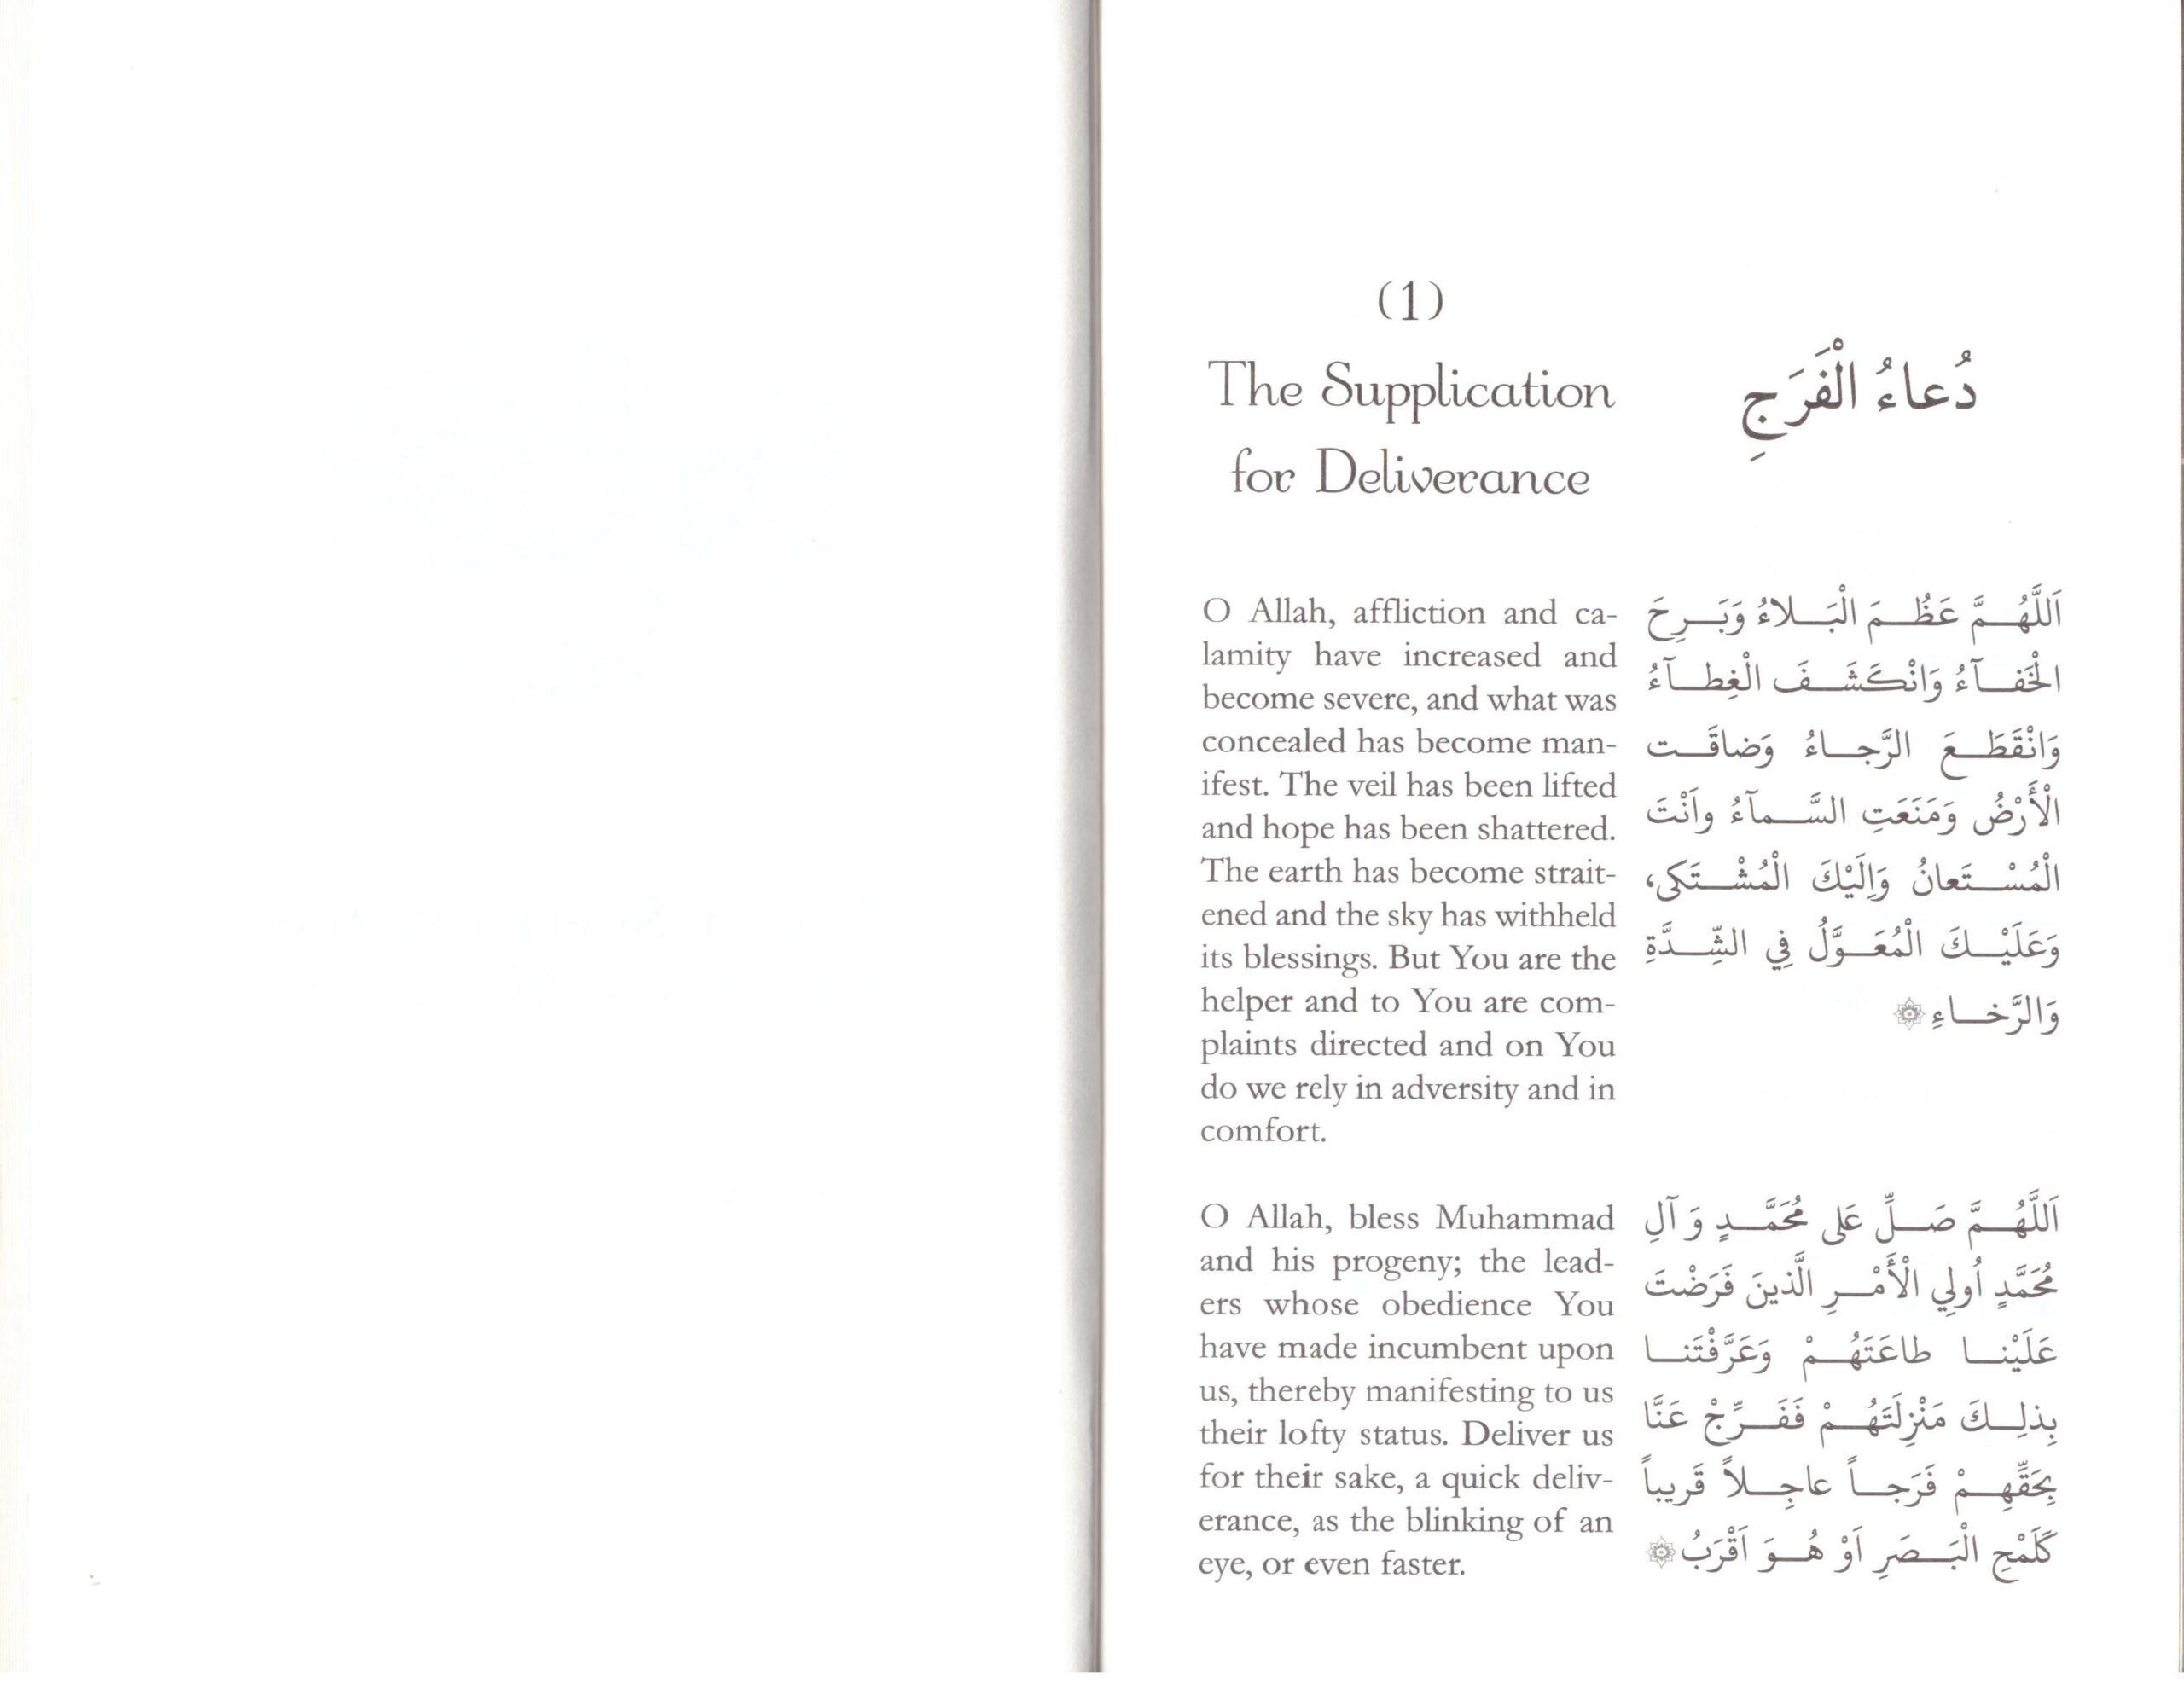 (1)
The Supplication
for Deliverance
دُعاءُ الْفَرَجِ
O Allah, affliction and ca-
lamity have increased and
become severe, and what was
concealed has become man-
ifest. The veil has been lifted
and hope has been shattered.
The earth has become strait-
ened and the sky has withheld
its blessings. But You are the
helper and to You are com-
plaints directed and on You
do we rely in adversity and in
comfort.
اَللَّهُمَّ عَظُمَ الْبَلاءُ وَبَرِحَ
الْخَفآءُ وَانْكَشَفَ الْغِطآءُ
وَانْقَطَعَ الرَّجاءُ وَضاقَت
الْأَرْضُ وَمَنَعَتِ السَّمآءُ واَنْتَ
الْمُسْتَعانُ وَاِلَيْكَ الْمُشْتَكى،
وَعَلَيْكَ الْمُعَوَّلُ فِي الشِّدَّةِ
وَالرَّخاءِ
O Allah, bless Muhammad
and his progeny; the lead-
ers whose obedience You
have made incumbent upon
us, thereby manifesting to us
their lofty status. Deliver us
for their sake, a quick deliv-
erance, as the blinking of an
eye, or even faster.
اَللَّهُمَّ صَلِّ عَلى مُحَمَّدٍ وَ آلِ
مُحَمَّدٍ اُولِي الْأَمْرِ الَّذينَ فَرَضْتَ
عَلَيْنا طاعَتَهُمْ وَعَرَّفْتَنا
بِذلِكَ مَنْزِلَتَهُمْ فَفَرِّجْ عَنَّا
بِحَقِّهِمْ فَرَجاً عاجِلاً قَريباً
كَلَمْحِ الْبَصَرِ اَوْ هُوَ اَقْرَبُ